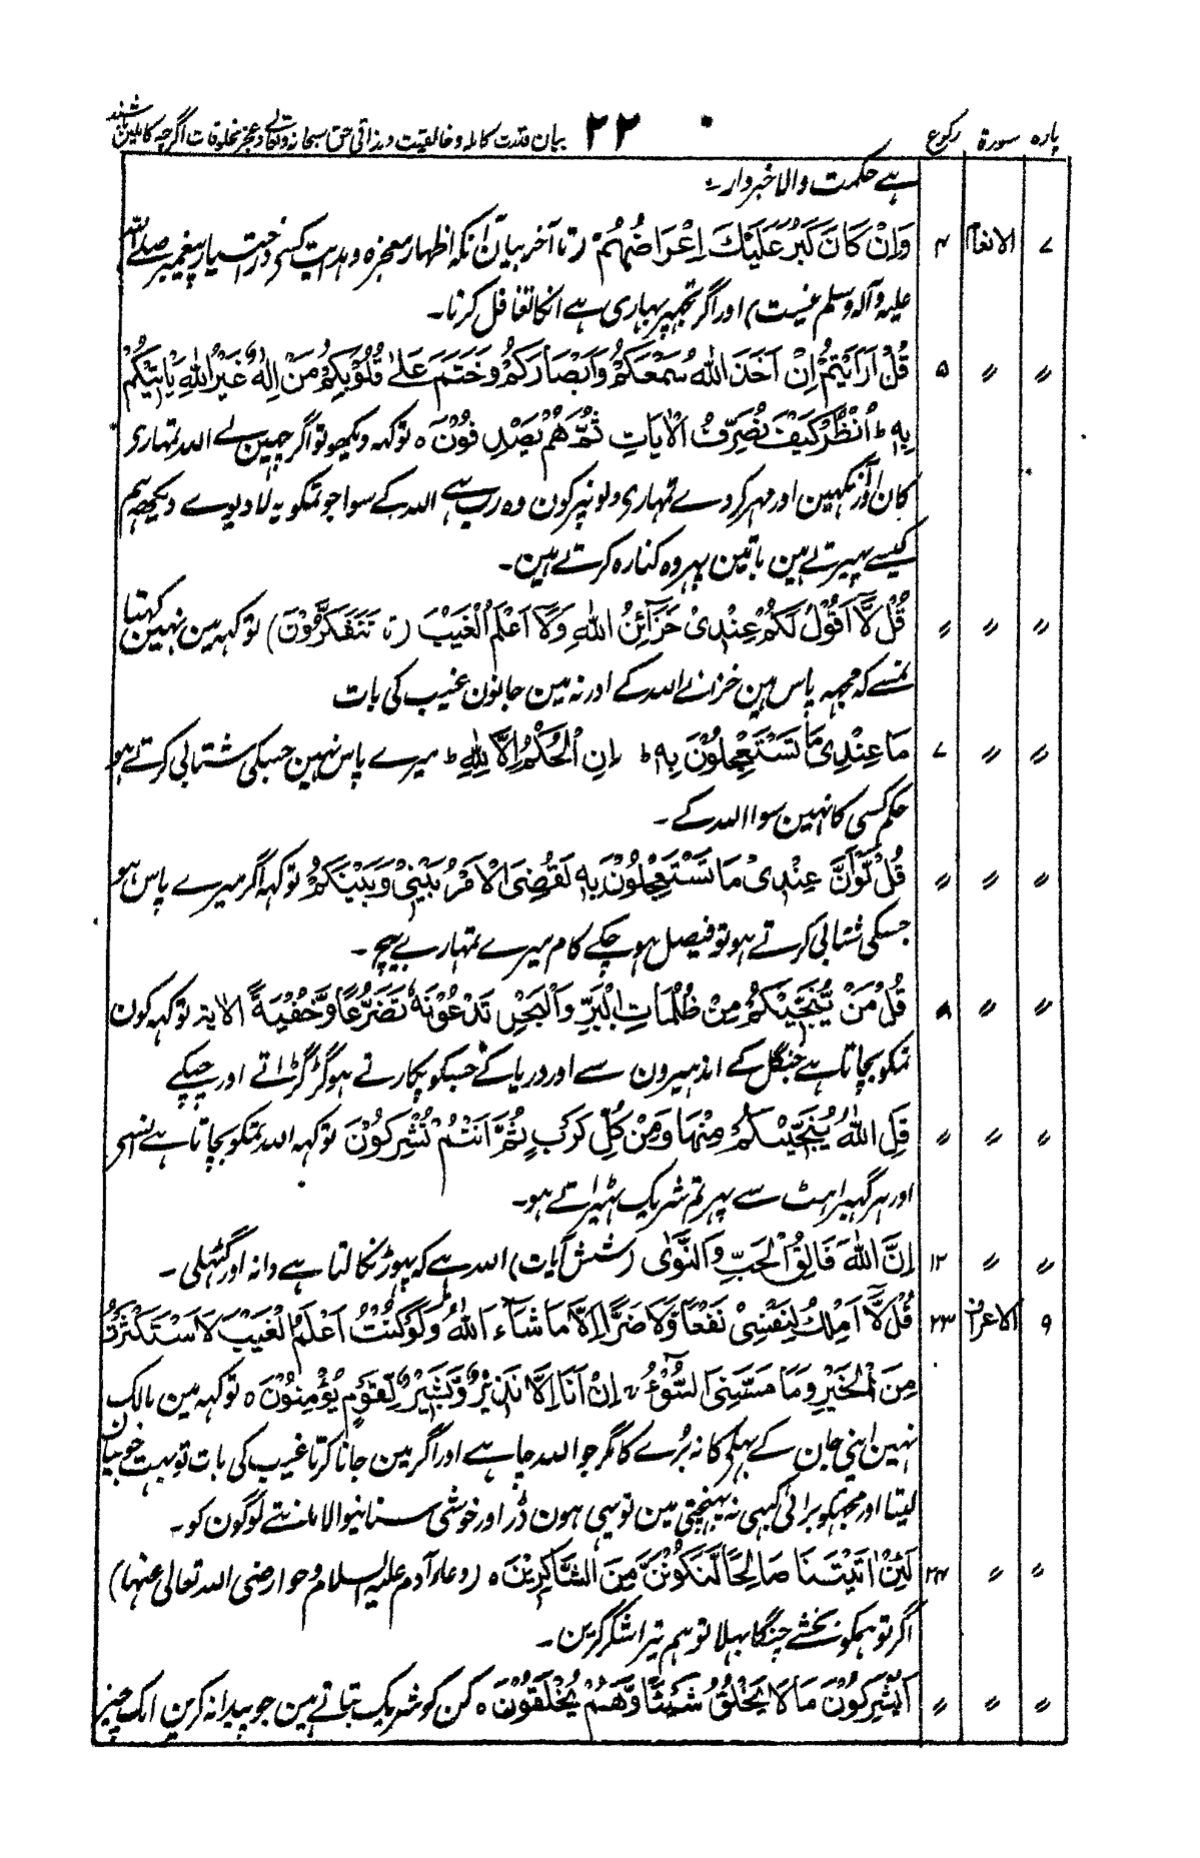 پارہ سورۃ رکوع ۲۲ بیان قدرت کاملہ و خالقیت و رزاقی حق سبحانہ وتعالے و عجز مخلوقات اگرچہ کاملین باشند
ہے حکمت والا خبردار۔
۷ الانعام ۴ وَاِنْ كَانَ كَبُرَ عَلَيْكَ اِعْرَاضُهُمْ (تا آخر بیان آنکہ اظہار معجزہ و ہدایت کسی در اختیار پیغمبر صلے اللہ
علیہ وآلہ وسلم نیست) اور اگر تجہپر بہاری ہے انکا تغافل کرنا۔
〃 〃 ۵ قُلْ اَرَاَيْتُمْ اِنْ اَخَذَ اللّٰهُ سَمْعَكُمْ وَاَبْصَارَكُمْ وَخَتَمَ عَلٰے قُلُوْبِكُمْ مَنْ اِلٰهٌ غَيْرُ اللّٰهِ يَاْتِيْكُمْ
بِهٖ ط اُنْظُرْ كَيْفَ نُصَرِّفُ الْاٰيَاتِ ثُمَّ هُمْ يَصْدِفُوْنَ ○ تو کہہ دیکھو تو اگر چہین لے اللہ تمہاری
کان اور آنکہین اور مہر کر دے تمہاری دلونپر کون وہ رب ہے اللہ کے سوا جو تمکو یہ لا دیوے دیکھہ ہم
کیسے پہیرتے ہین باتین پہر وہ کنارہ کرتے ہین۔
〃 〃 〃 قُلْ لَّا اَقُوْلُ لَكُمْ عِنْدِىْ خَزَآئِنُ اللّٰهِ وَلَا اَعْلَمُ الْغَيْبَ (تا تَتَفَكَّرُوْنَ) تو کہہ مین نہین کہتا
تمسے کہ مجہہ پاس ہین خزانے اللہ کے اور نہ مین جانون غیب کی بات
〃 〃 ۷ مَا عِنْدِىْ مَا تَسْتَعْجِلُوْنَ بِهٖ ط اِنِ الْحُكْمُ اِلَّا لِلّٰهِ ط میرے پاس نہین جسکی شتابی کرتے ہو
حکم کسی کا نہین سوا اللہ کے۔
〃 〃 〃 قُلْ لَّوْ اَنَّ عِنْدِىْ مَا تَسْتَعْجِلُوْنَ بِهٖ لَقُضِىَ الْاَمْرُ بَيْنِىْ وَبَيْنَكُمْ تو کہہ اگر میرے پاس ہو
جسکی شتابی کرتے ہو تو فیصل ہو چکے کام میرے تمہارے بیچ۔
〃 〃 ۸ قُلْ مَنْ يُّنَجِّيْكُمْ مِنْ ظُلُمَاتِ الْبَرِّ وَالْبَحْرِ تَدْعُوْنَهٗ تَضَرُّعًا وَّخُفْيَةً الاٰیۃ تو کہہ کون
تمکو بچاتا ہے جنگل کے اندہیرون سے اور دریا کے جسکو پکارتے ہو گڑگڑاتے اور چپکے
〃 〃 〃 قُلِ اللّٰهُ يُنَجِّيْكُمْ مِنْهَا وَمِنْ كُلِّ كَرْبٍ ثُمَّ اَنْتُمْ تُشْرِكُوْنَ تو کہہ اللہ تمکو بچاتا ہے انسے
اور ہر گہبراہٹ سے پہر تم شریک ٹہیراتے ہو۔
〃 〃 ۱۲ اِنَّ اللّٰهَ فَالِقُ الْحَبِّ وَالنَّوٰى (شش آیات) اللہ ہے کہ پہوڑ نکالتا ہے دانہ اور گٹہلی۔
۹ الاعراف ۲۳ قُلْ لَّا اَمْلِكُ لِنَفْسِىْ نَفْعًا وَّلَا ضَرًّا اِلَّا مَا شَآءَ اللّٰهُ وَلَوْ كُنْتُ اَعْلَمُ الْغَيْبَ لَاسْتَكْثَرْتُ
مِنَ الْخَيْرِ وَمَا مَسَّنِىَ السُّوْٓءُ ۛ اِنْ اَنَا اِلَّا نَذِيْرٌ وَّبَشِيْرٌ لِّقَوْمٍ يُّؤْمِنُوْنَ ○ تو کہہ مین مالک
نہین اپنی جان کے بہلے کا نہ بُرے کا مگر جو اللہ چاہے اور اگر مین جانا کرتا غیب کی بات تو بہت خوبیان
لیتا اور مجہکو برائی کبہی نہ پہنچتی مین تو یہی ہون ڈر اور خوشی سنانیوالا مانتے لوگون کو۔
〃 〃 ۲۴ لَئِنْ اٰتَيْتَنَا صَالِحًا لَّنَكُوْنَنَّ مِنَ الشَّاكِرِيْنَ ○ (دعاء آدم علیہ السلام و حوا رضی اللہ تعالی عنہا)
اگر تو ہمکو بخشے چنگا بہلا تو ہم تیرا شکر کرین۔
〃 〃 〃 اَيُشْرِكُوْنَ مَا لَا يَخْلُقُ شَيْئًا وَّهُمْ يُخْلَقُوْنَ ○ کن کو شریک بتاتے ہین جو پیدا نہ کرین ایک چیز